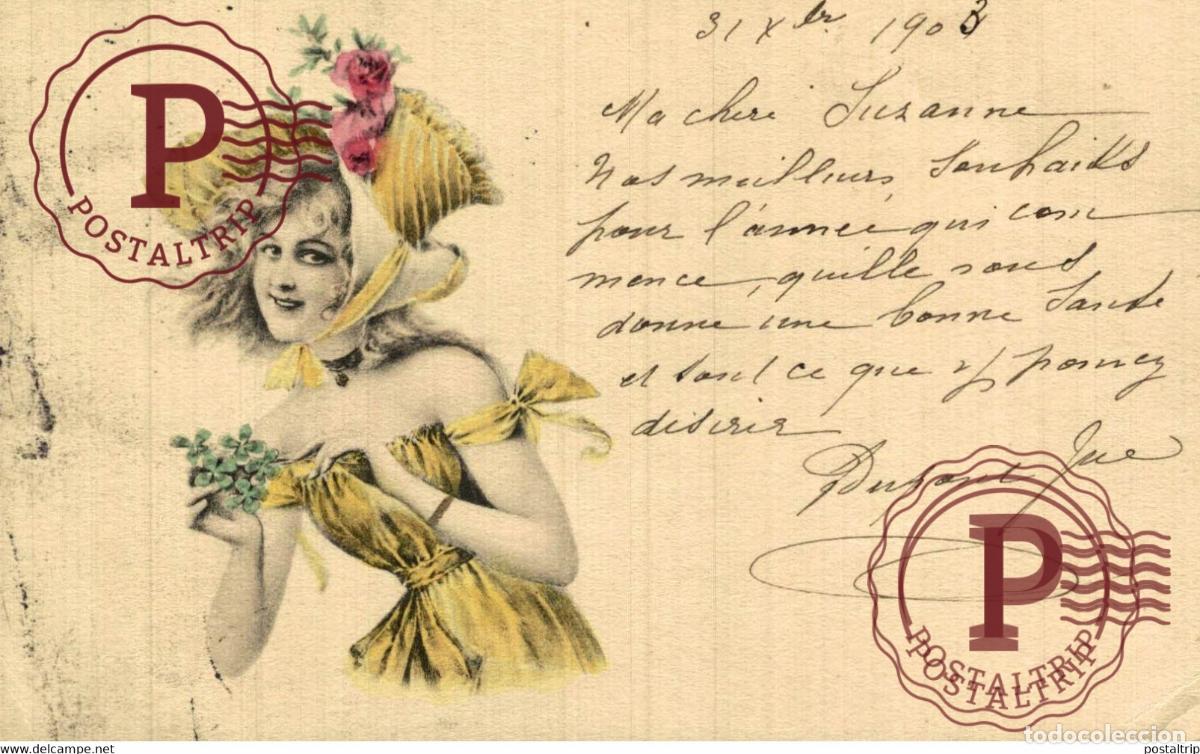 31 Xbr 1903
Ma chere Suzanne
Nos meilleurs souhaits
pour l'année qui com
mence, quille vous
donne une bonne Santé
et tout ce que vs pouvez
désirer
P
POSTALTRIP
P
POSTALTRIP
POSTALTRIP
todocoleccion
www.delcampe.net
postaltrip